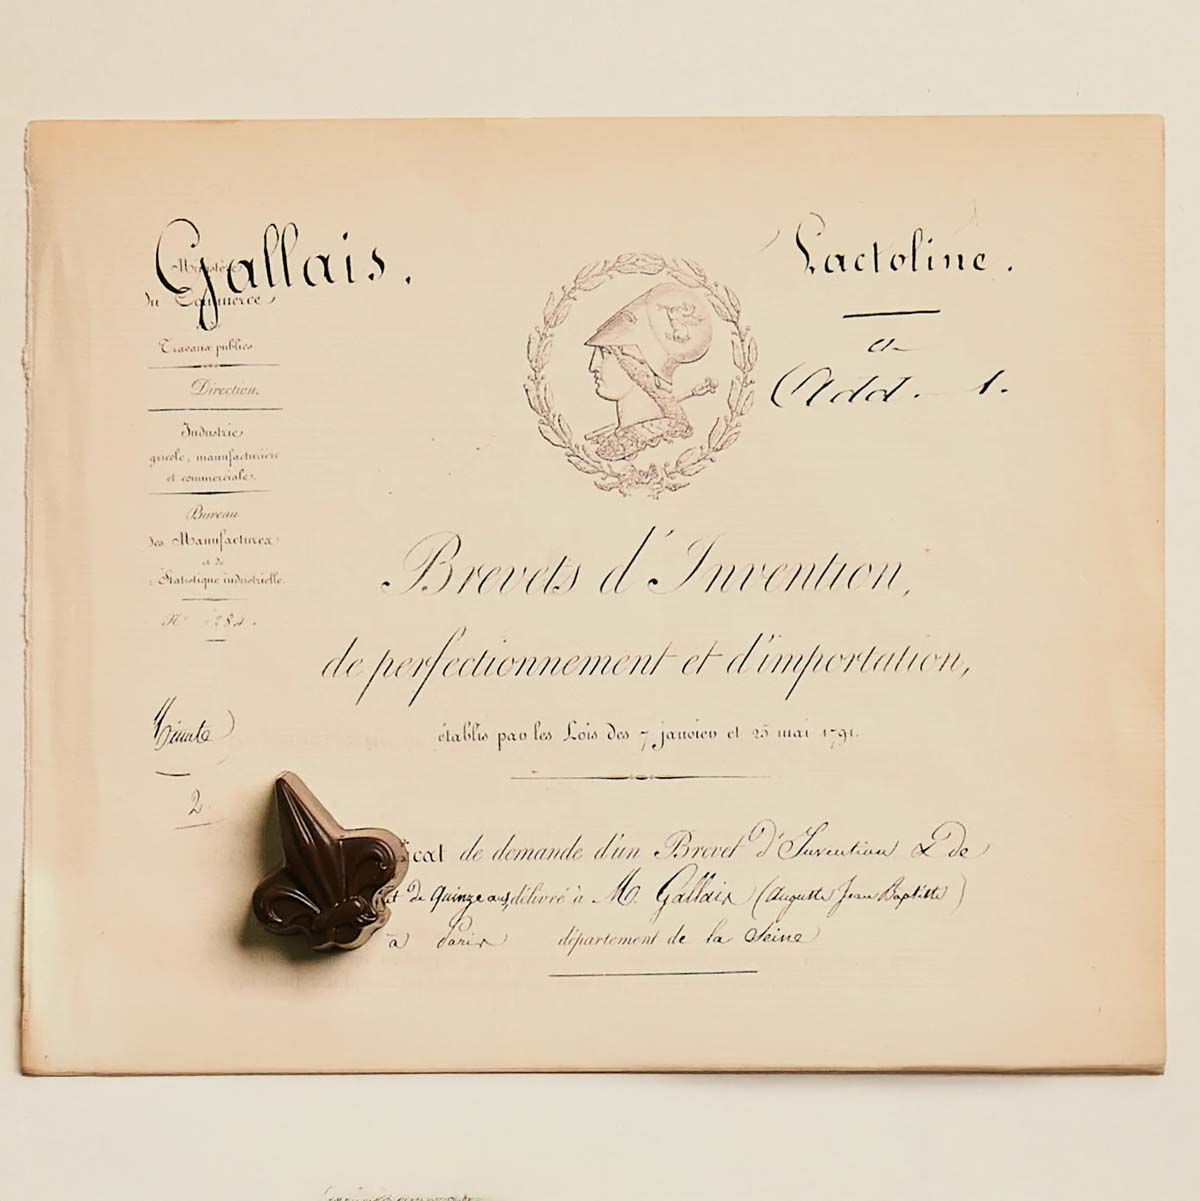 Gallais.
Ministère
du Commerce
Travaux publics
Direction.
Industrie
gricole, manufacturière
et commerciale.
Bureau
des Manufactures
et de
Statistique industrielle.
Minute
2
Lactoline.
et
Add. 1.
Brevets d'Invention,
de perfectionnement et d'importation,
établis par les Lois des 7 janvier et 25 mai 1791.
icat de demande d'un Brevet d'Invention & de
de Quinze ans, délivré à M. Gallais (Auguste Jean Baptiste)
à Paris département de la Seine